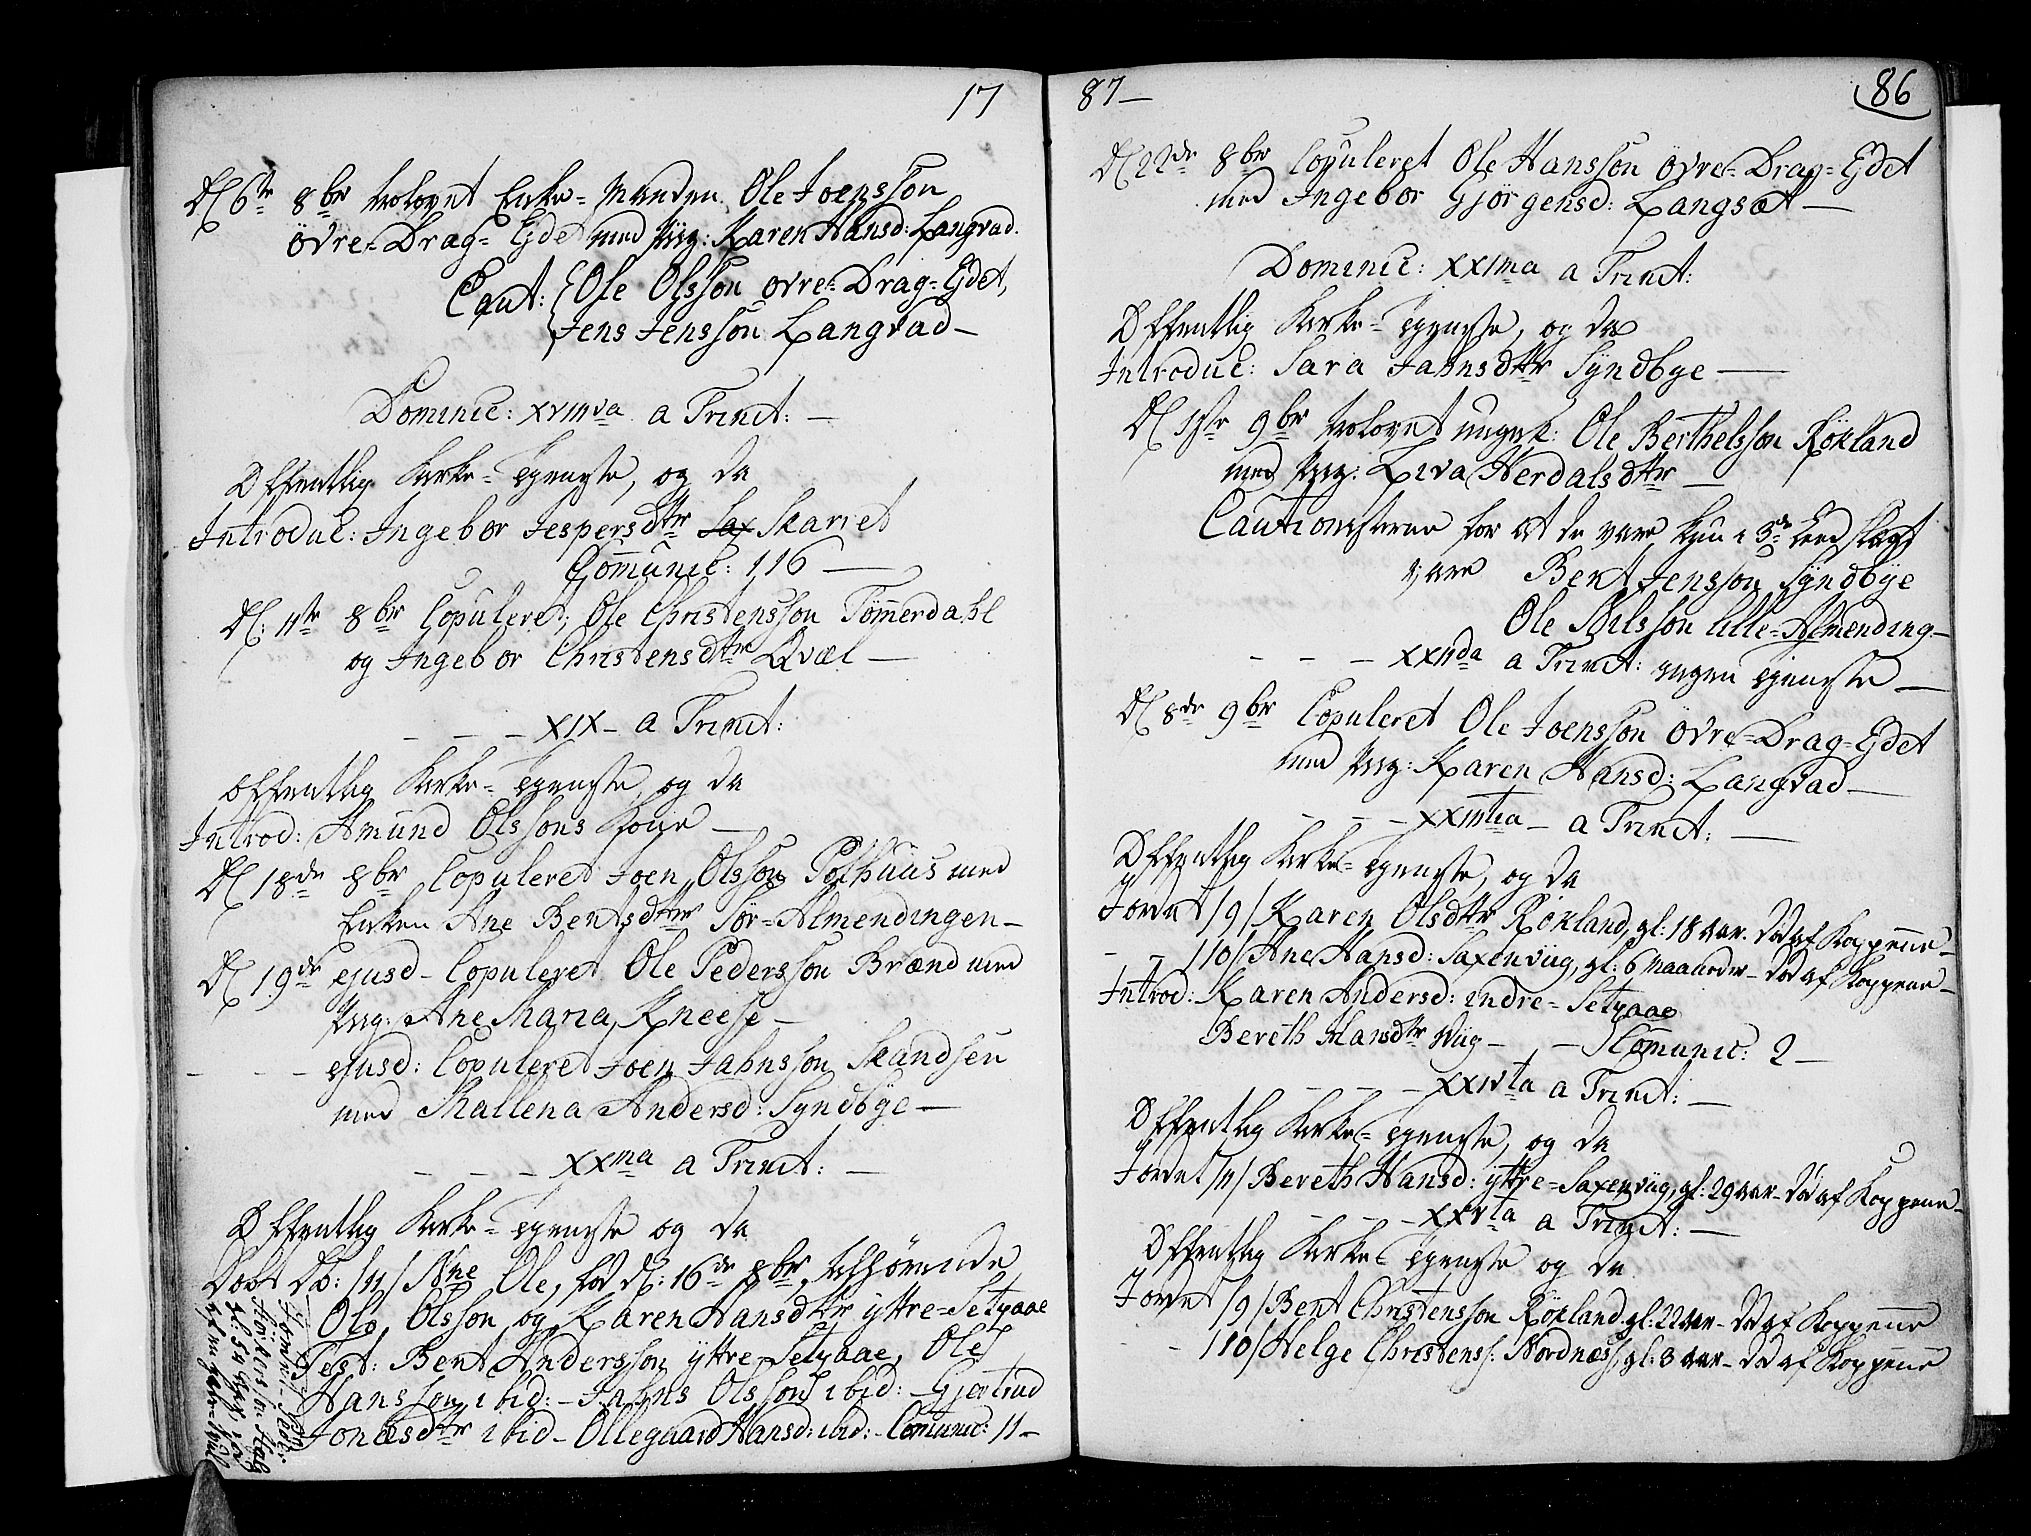 17
D. 6te 8br trolovet Enke-Manden Ole Joensson
övre-Drag-Ejdet med Pig: Karen Hansd: Langvad.
Caut: Ole Olsson ovre-Drag-Ejdet,
Jens Jensson Langvad
Dominic: XVIIIva a Trinit:
Offentlig Kirke-Tjeneste, og da
Introduc: Ingebor Jespersdttr Sax Skariet
Com̅unic: 116
D. 11te 8br Copuleret, Ole Christensson Tøm̅erdahl
og Ingebor Christensdttr Qvæl
- - - XIX- a Trinit:
Offentlig Kirke-Tjeneste, og da
Introd: Amund Olssons Kone
D. 18de 8br Copuleret Joen Olsson Pothuus med
Enken Ane Bentsdttr Sør-Almendingen
D. 19de ejusd- Copuleret Ole Pedersson Brænd med
Pig: Ane Maria Kneese
- - - ejusd: Copuleret Joen Jahnsson Skandsen
med Mallena Andersd: Syndbye
- - - XXma a Trinit:
Offentlig Kirke-Tjeneste og da
Døbt Db: /11/ Nne Ole, fød d: 16de 8br, tilhørende
Ole Olsson og Karen Hansdttr yttre-Setvaae
Test: Bent Andersson yttre Setvaae, Ole
Hansson ibid: - Jahns Olsson ibid: - Gjertrud
Jonæsdttr ibid - Ollegaard Hansd: ibid: - Comunic: 11-
87
86
D. 22de 8br Copuleret Ole Hansson övre-Drag-Ejdet
med Ingebor Gjørgensd: Langsæt
Dominic: XXIma a Trinit:
Offentlig Kirke-Tjeneste, og da
Introduc: Sara Jahnsdttr Syndbye
D. 1ste 9br trolovet ungk: Ole Berthelsson Røkland
med Pig: Liva Herdalsdttr
Cautionisterne for at de vare kun i 3de Leed skyldt
vare Bent Jensson Syndbye
Ole Nilsson lille-Almending
- - - XXIIda a Trinit: ingen Tjeneste
D. 8de 9br Copuleret Ole Joensson övre-Drag-Ejdet
med Pig: Karen Hansd: Langvad
- - - XXIIItia - a Trinit:
Offentlig Kirke-Tjeneste, og da
Jordet /9/ Karen Olsdttr Røkland, gl: 18 aar. Død af Koppene
- - /10/ Ane Hansd: Saxenviig, gl: 6 Maaneder - Død af Koppene
Introd: Karen Andersd: indre-Setvaae
Bereth Hansdttr Viig - - Comunic: 2
- - - XXIVta a Trinit:
Offentlig Kirke-Tjeneste, og da
Jordet /11/ Bereth Hansd: yttre-Saxenviig, gl: 29 aar - Død af Koppene
- - - XXVta a Trinit:
Offentlig Kirke-Tjeneste og da
Jordet /9/ Bent Christensson Røkland gl: 22 aar - Død af Koppene
- - /10/ Helge Christenss: Nordnæs, gl: 3 aar - Død af Koppene